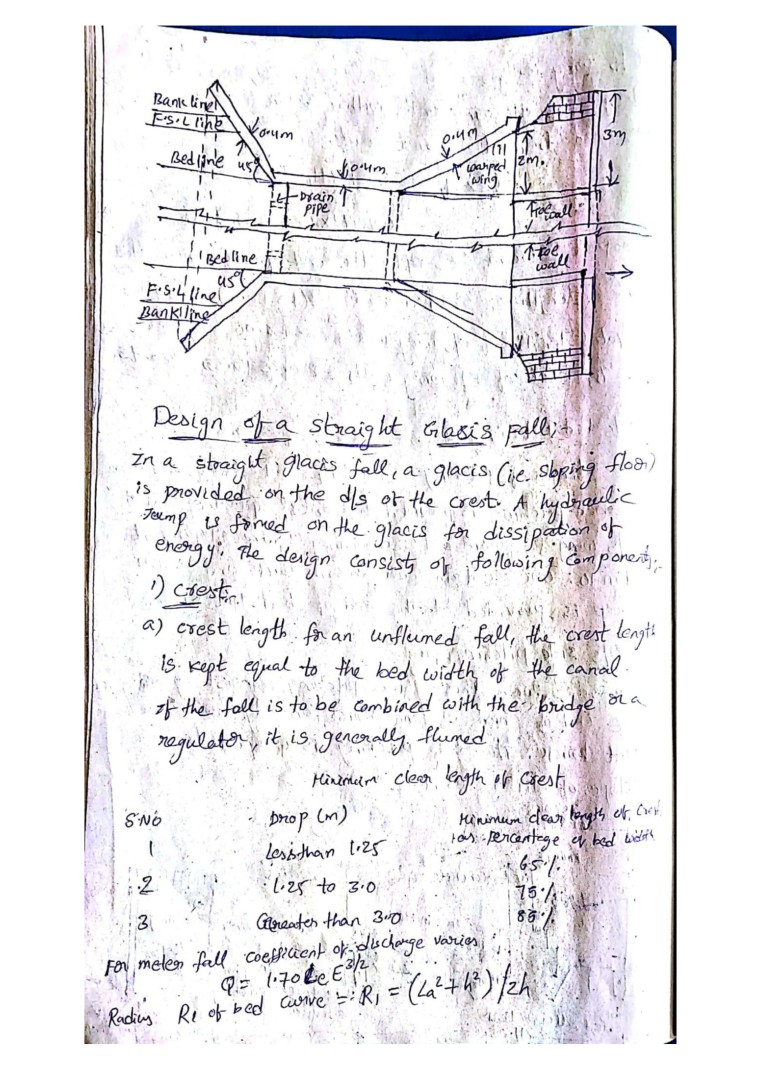 Bank line
F.S.L line
0.4m
0.4m
(1)
Bed line
45°
0.4m
warped
wing
2m.
3m
Drain
pipe
Toe wall
Bed line
Toe
wall
45°
F.S.L line
Bank line
Design of a straight Glasis Fall:-
In a straight glacis fall, a glacis (i.e. sloping floor)
is provided on the d/s of the crest. A hydraulic
Jump is formed on the glacis for dissipation of
energy. The design consists of following Component:-
1) Crest:-
a) crest length for an unflumed fall, the crest length
is kept equal to the bed width of the canal.
If the fall is to be combined with the bridge or a
regulator, it is generally flumed
Minimum clear length of Crest
S.NO Drop (m) Minimum clear length of Crest
as percentage of bed width
1 Less than 1.25 65%
2 1.25 to 3.0 75%
3 Greater than 3.0 85%
For meter fall coefficient of discharge varies
Q = 1.70 Le E^3/2
Radius R1 of bed curve = R1 = (La² + h²)/2h